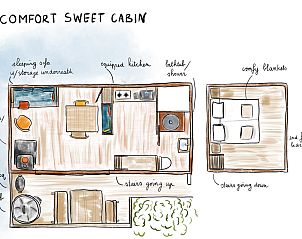 COMFORT SWEET CABIN
sleeping sofa
w/storage underneath
equipped kitchen
bathtub/
shower
comfy blankets
stairs going up
stairs going down